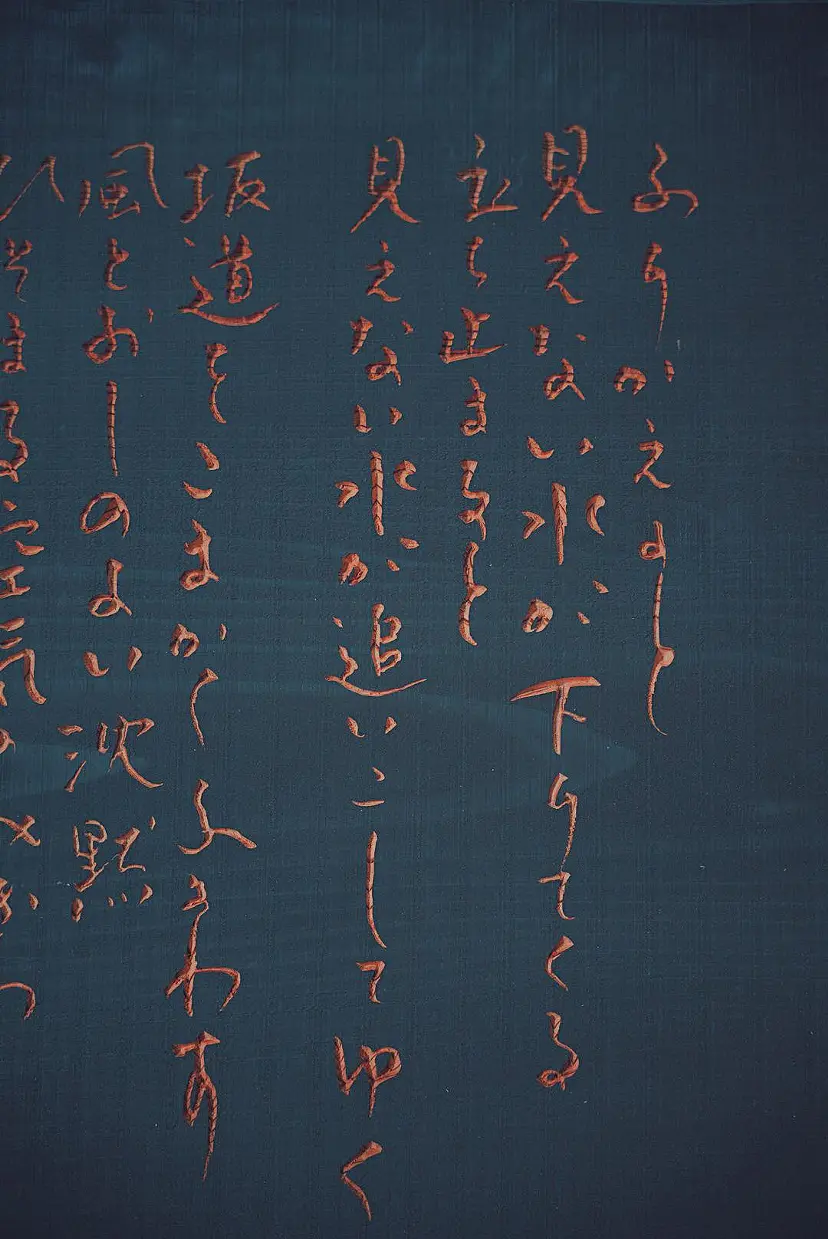 ふりかえ
見えない水が下りてくる
立ち止まると
見えない水が追いこしてゆく
坂道をこまかくふるわす
風とおしのよい沈黙
ひそまる空気の